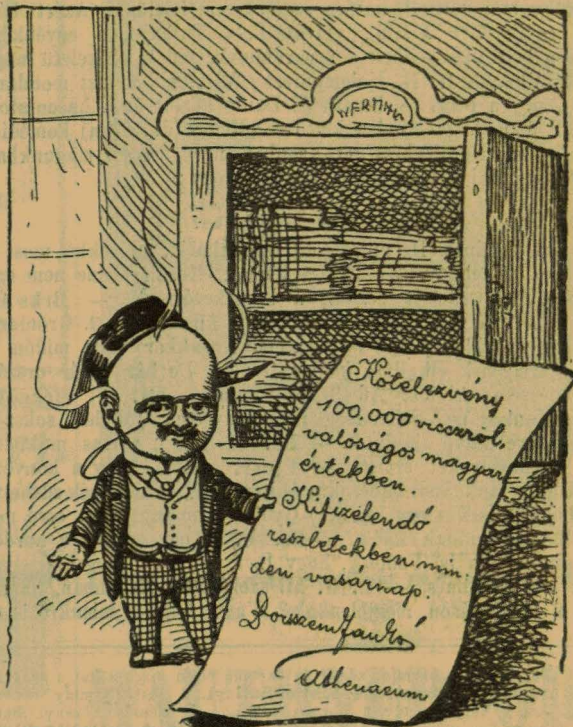 WERTHEIM
Kötelezvény
100.000 viczről,
valóságos magyar
értékben.
Kifizelendő
részletekben min
den vasárnap.
Borszem Jankó
Athenaeum